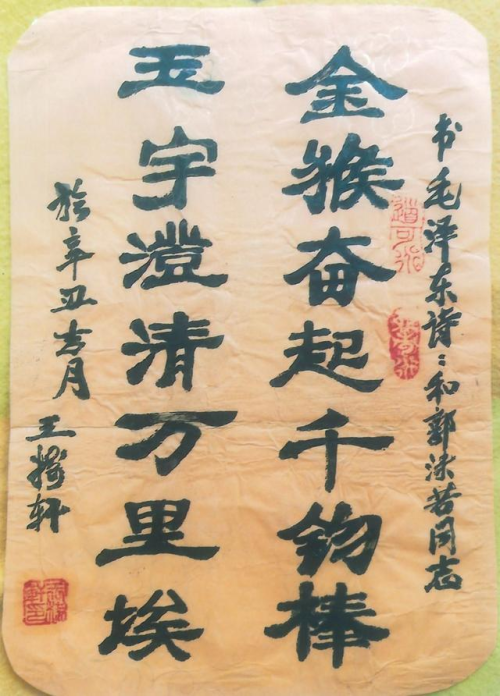 书毛泽东诗：和郭沫若同志
金猴奋起千钧棒
玉宇澄清万里埃
於辛丑吉月
王轩